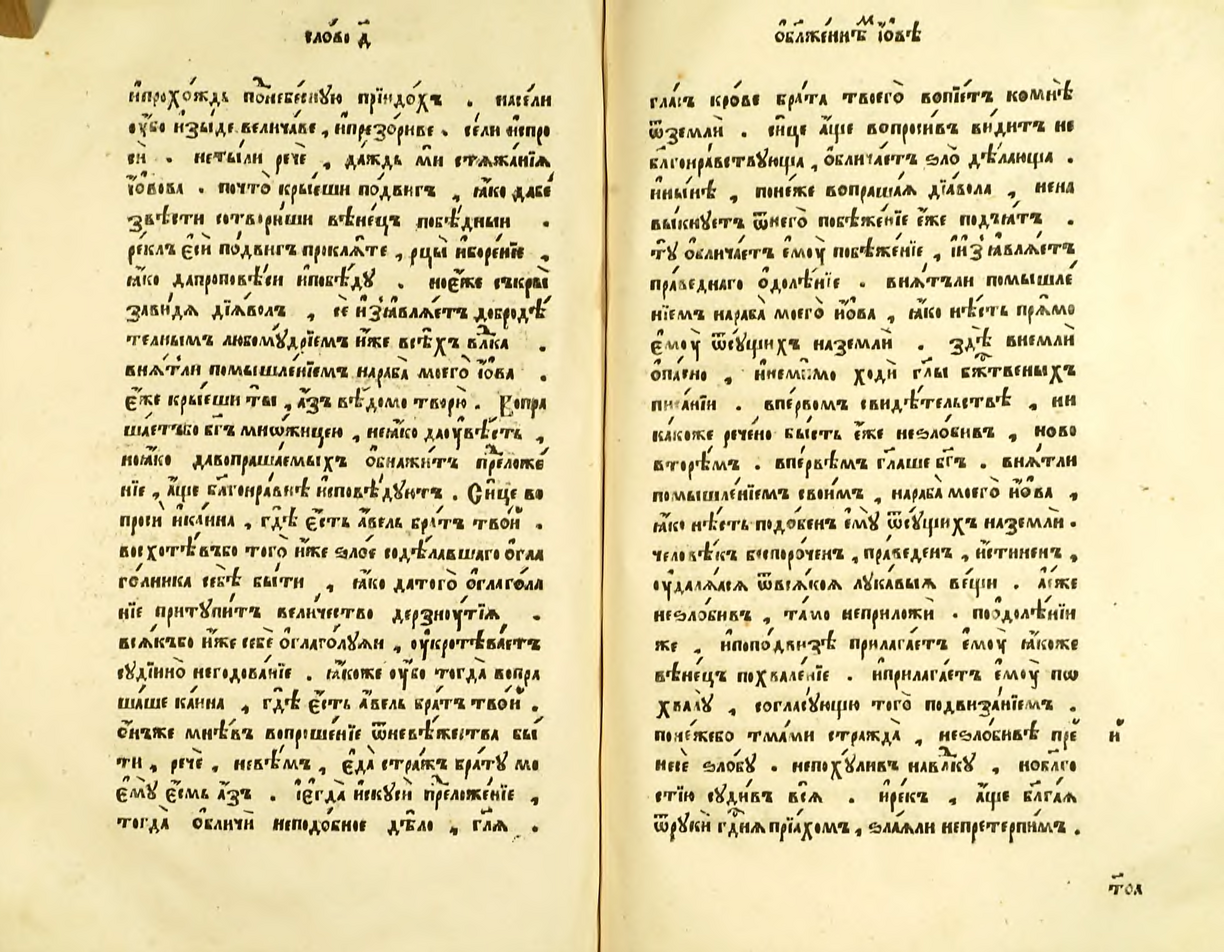 сло́во д҃
и҆прохо́ждь по́небесную прїидо́хъ . насе́ли
оу҆́бо и҆зы́де.велича́ве , и҆презо́риве . се́ли и҆спро
си̂ . нетыли речѐ , да́ждь мѝ стѧжа́нїѧ
і҆́овова . почто̀ кры́еши по́двигъ , ꙗ҆́ко дабе
зче́сти сотвори́ши вѣне́цъ побѣ́дныи .
ре́клъ є҆сѝ по́двигъ прокла́те , рцы̀ и҆боре́нїе ,
ꙗ҆́ко дапроповѣ́си и҆побѣ́ду . но є҆́же съкры̀
зави́дѧ дїѧ́волъ , сѐ и҆зꙗвлѧ́етъ доброд̾ѣ́
телнымъ любому́дрїемъ и҆́же всѣ́хъ влⷣка .
внѧ́тли помышле́нїемъ нараба̀ моего̀ і҆́ова .
є҆́же кры́еши ты̀ , а҆́зъ вѣ́домо творю̀ . Вопра
ша́етъбо бг҃ъ мно́жицею , неꙗ҆́ко даоу҆вѣ́сть ,
ноꙗ҆́ко давопраша́емыхъ ѡ҆бнажи́тъ преⷣложе́
нїе , а҆́ще бл҃гонра́внѣ и҆сповѣ́дуютъ . Си́це во
просѝ и҆ка́ина , гдѣ̀ є҆́сть а҆́вель бра́тъ тво́й .
восхотѣ́въбо того̀ и҆́же ѕло́е содѣ́лавшаго ѡ҆гла
го́лника себѣ̀ бы́ти , ꙗ҆́ко датого̀ ѡ҆глаго́ла
нїе притупи́тъ вели́чество дерзноутїѧ .
всѧ́къбо и҆́же себѐ ѡ҆глаго́луѧи , оу҆кротѣва́етъ
суди́йно негодова́нїе . ꙗ҆́коже оу҆́бо тогда̀ вопра
ша́ше ка́ина , гдѣ̀ є҆́сть а҆́вель бра́тъ тво́й .
ѻ҆́нъже мнѣ́въ вопроше́нїе ѿневѣ́жества бы́
ти , речѐ , невѣ́мъ , є҆да̀ стра́жъ бра́ту мо
ємꙋ̀ є҆́смь а҆́зъ . і҆єгда̀ и҆скусѝ преⷣложе́нїе ,
тогда̀ ѡ҆бличѝ неподо́бное дѣ́ло , гл҃ѧ .
ѡ҆бл҃же́ннѣмъ і҆́овѣ
гла́съ кро́ве бра́та твоего̀ вопїе́тъ комнѣ̀
ѿземлѝ . си́це а҆́ще вопроси́въ ви́дитъ не
бл҃гонра́вствующа , ѡ҆блича́етъ ѕло̀ дѣ́лающа .
и҆ны́нѣ , поне́же вопраша́ѧ дїѧ́вола , нена
вы́кнуетъ ѿнего̀ побѣже́нїе є҆́же подъѧ́тъ .
тꙋ̀ ѡ҆блича́етъ є҆моу̀ побѣже́нїе , и҆изꙗвлѧ́етъ
пра́веднаго ѡ҆долѣ́нїе . внѧ́тъли помышле́
нїемъ нараба̀ моего̀ и҆́ова , ꙗ҆́ко нѣ́сть прѧ́мо
є҆моу̀ ѿсу́щихъ наземлѝ . здѣ̀ внемлѝ
ѡ҆па́сно , и҆немимо ходѝ гл҃ы бж҃твеныхъ
писа́нїи . впе́рвомъ свидѣ́тельствѣ , ни
ка́коже рече́но бы́сть є҆́же неѕло́бивъ , ново
вторѣ́мъ . впе́рвѣмъ гл҃аше бг҃ъ . внѧ́тли
помышле́нїемъ свои́мъ , нараба̀ моего̀ и҆́ова ,
ꙗ҆́ко нѣ́сть подо́бенъ є҆му̀ ѿсу́щихъ наземлѝ .
человѣ́къ беспоро́ченъ , пра́веденъ , и҆́стиненъ ,
оу҆далѧ́ѧсѧ ѿвсѧ́коѧ лука́выѧ ве́щи . а҆є҆́же
неѕло́бивъ , та́мо неприложѝ . поѡ҆долѣ́нїи
же , и҆поподвизѣ̀ прилага́етъ є҆моу̀ ꙗ҆́коже
вѣне́цъ похвале́нїе . и҆прилага́етъ є҆моу̀ по
хвалу̀ , согласу́ющю того̀ подвиза́нїемъ .
поне́жебо тма́ми стражда̀ , неѕло́бивѣ пре й
несѐ ѕло́бу . непоху́ливъ навлⷣку , нобл҃го
стїю суди́въ всѧ̀ . и҆ре́къ , а҆́ще бл҃га́ѧ
ѿрукѝ гдⷭ҇нѧ прїѧ́хомъ , ѕла́ѧли непрете́рпимъ .
то́л